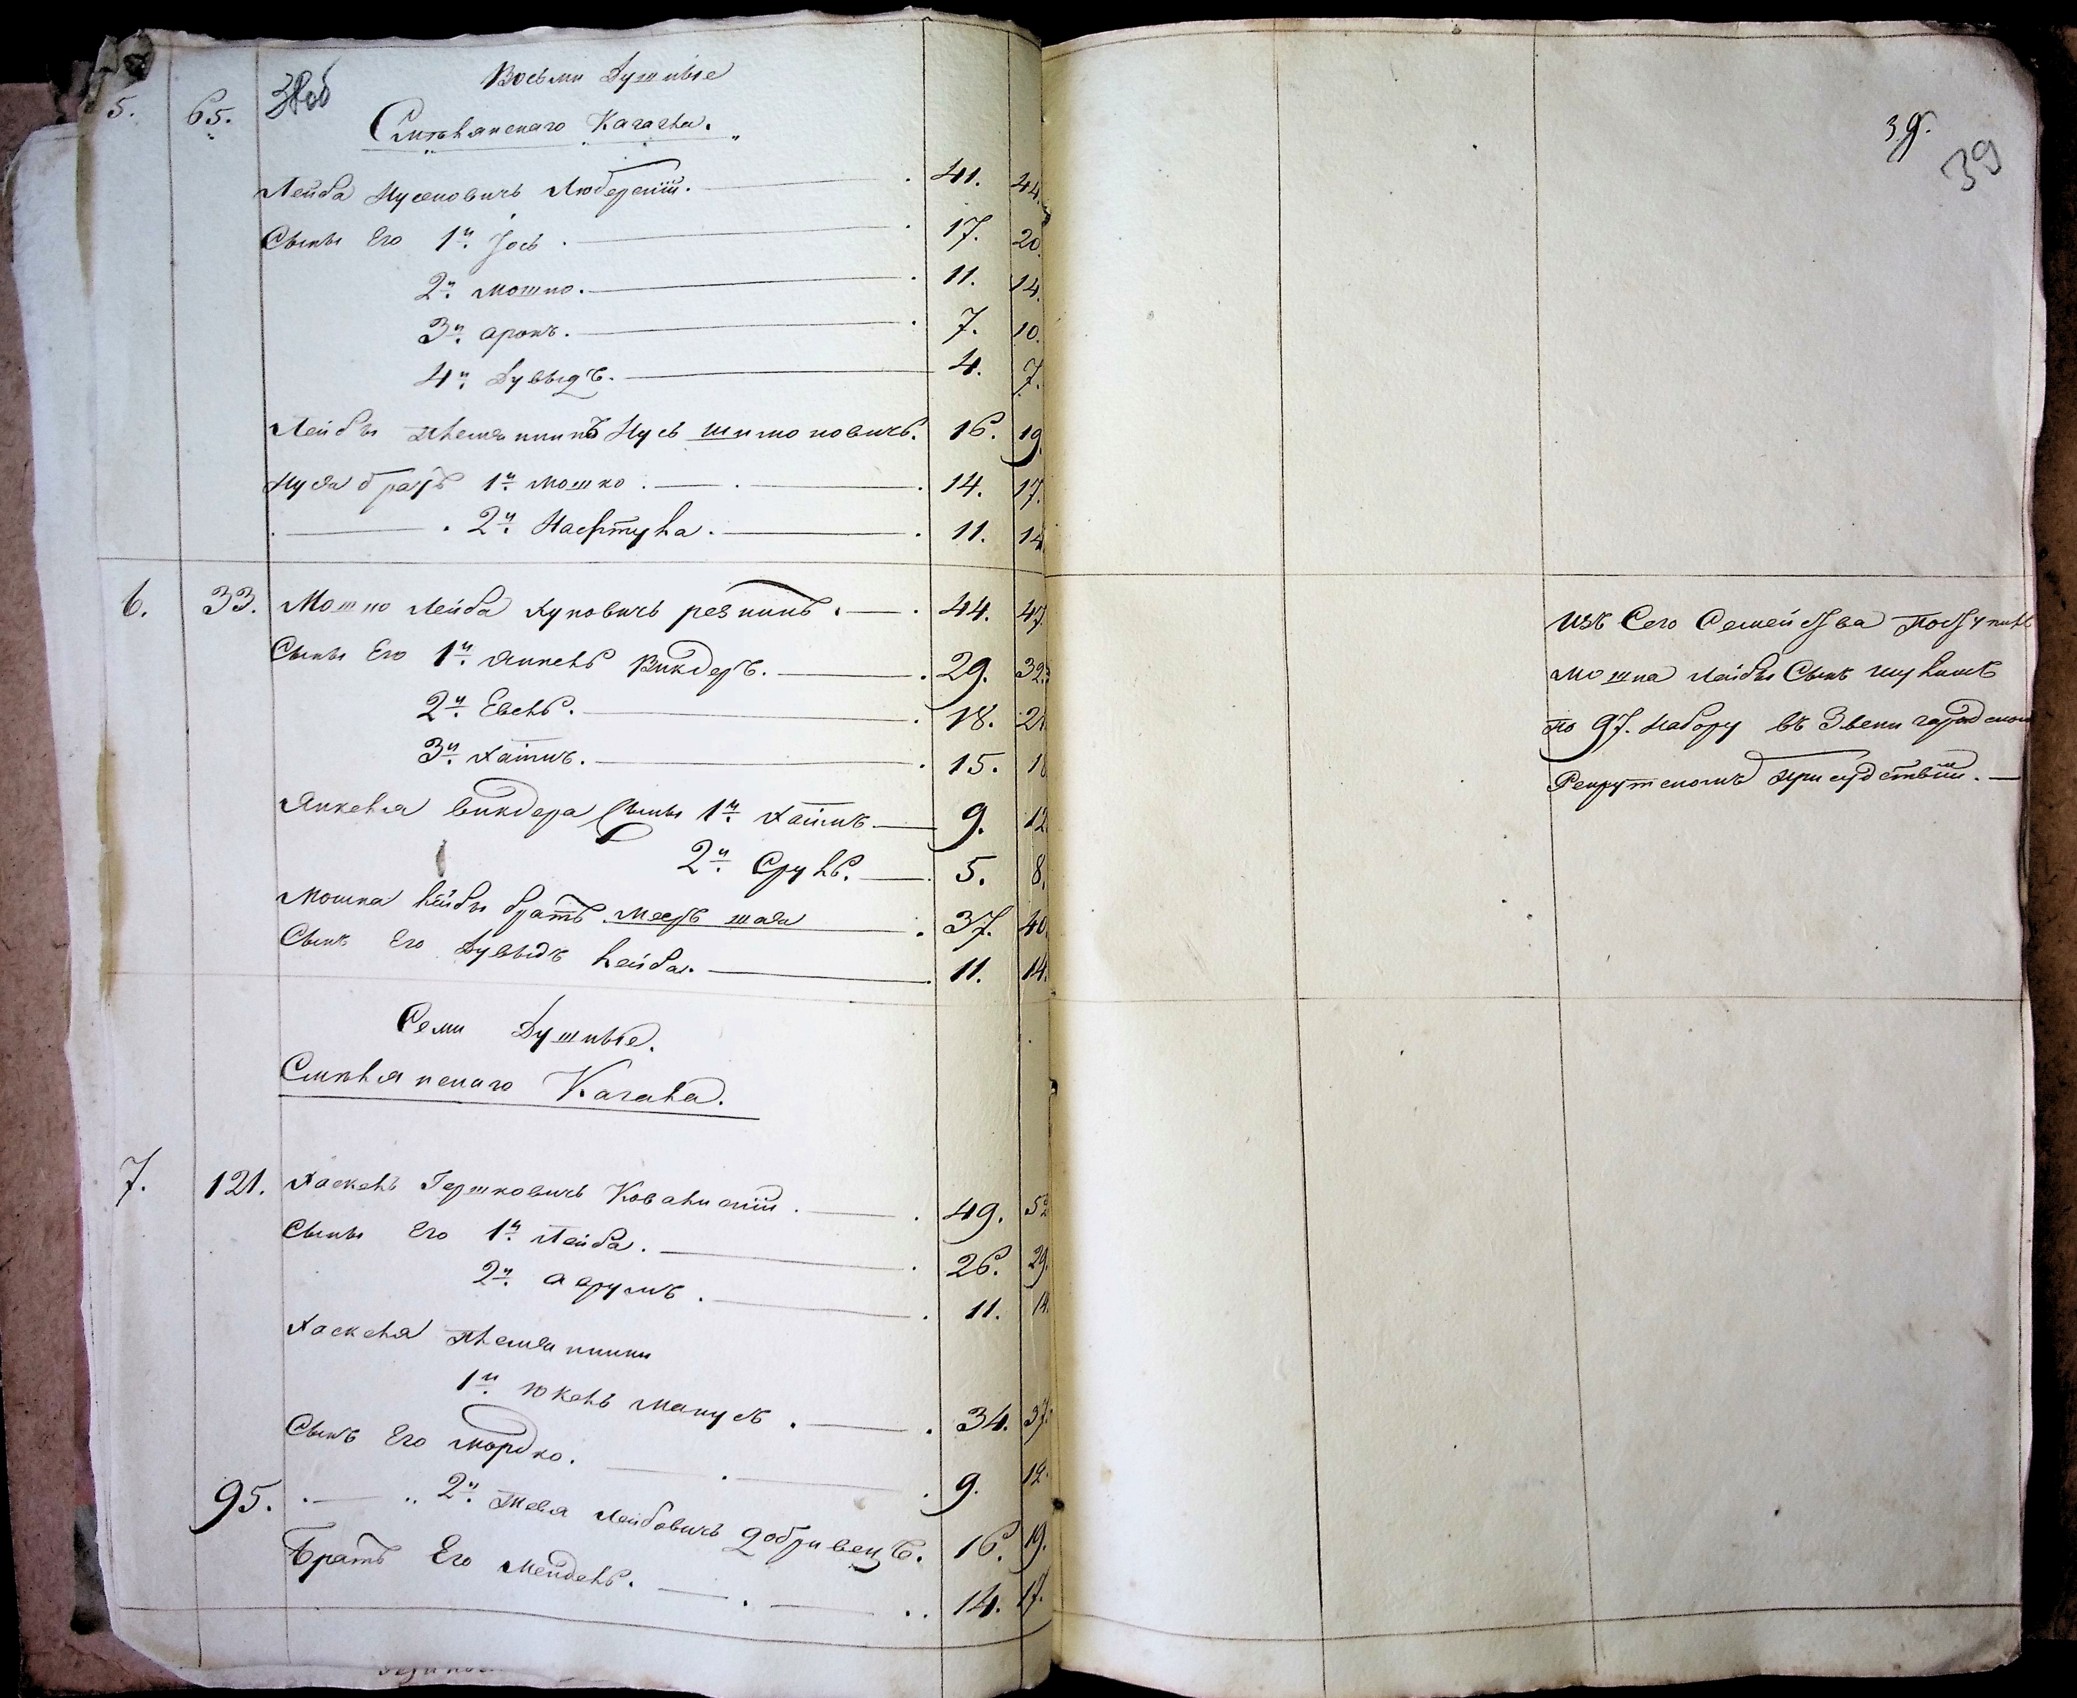 Восьми Душные
5. 65. 38об
Смѣлянскаго Кагала.
Лейба Нусеновичь Люберскій. 41. 44.
Сыны Его 1й. Іось. 17. 20.
2й. Мошко. 11. 14.
3й. аронъ. 7. 10.
4й. Дувыдъ. 4. 7.
Лейбы племянникъ Нусь Шимоновичь. 16. 19.
Нуся братъ 1й. Мошко. 14. 17.
2й. Нафтула. 11. 14
6. 33. Мошко Лейба Хуновичь резникъ. 44. 47.
Сыны Его 1й. Янкель Викдеръ. 29. 32.
2й. Евель. 18. 21.
3й. Хаимъ. 15. 18
Янкеля Викдера Сыны 1й. Хаимъ 9. 12.
2й. Сруль. 5. 8.
Мошка Лейбы братъ Мееръ шая 37. 40.
Сынъ Его Дувыдъ Лейба. 11. 14.
Семи Душные.
Смѣлянскаго Кагала.
7. 121. Хаскель Гершковичь Ковальскій. 49. 52
Сыны Его 1й. Лейба. 26. 29.
2й. Аврумъ. 11. 14.
Хаскеля племянники
1й. Юкель Манусъ. 34. 37.
Сынъ Его Мордко. 9. 12.
95. 2й. Тевя Лейбовичь Добривецъ. 16. 19.
Братъ Его Мендель. 14. 17.
39.
39
Изъ Сего Семейства Поступилъ
Мошка Лейбы Сынъ
по 97. набору въ Звенигородскомъ
Рекрутскомъ присудствіи.